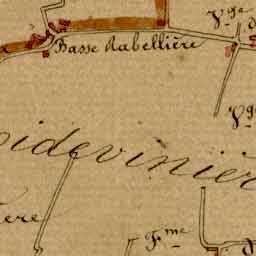 V.ge
Basse Rabellière
V.ge
idevinièr
ère
F.me